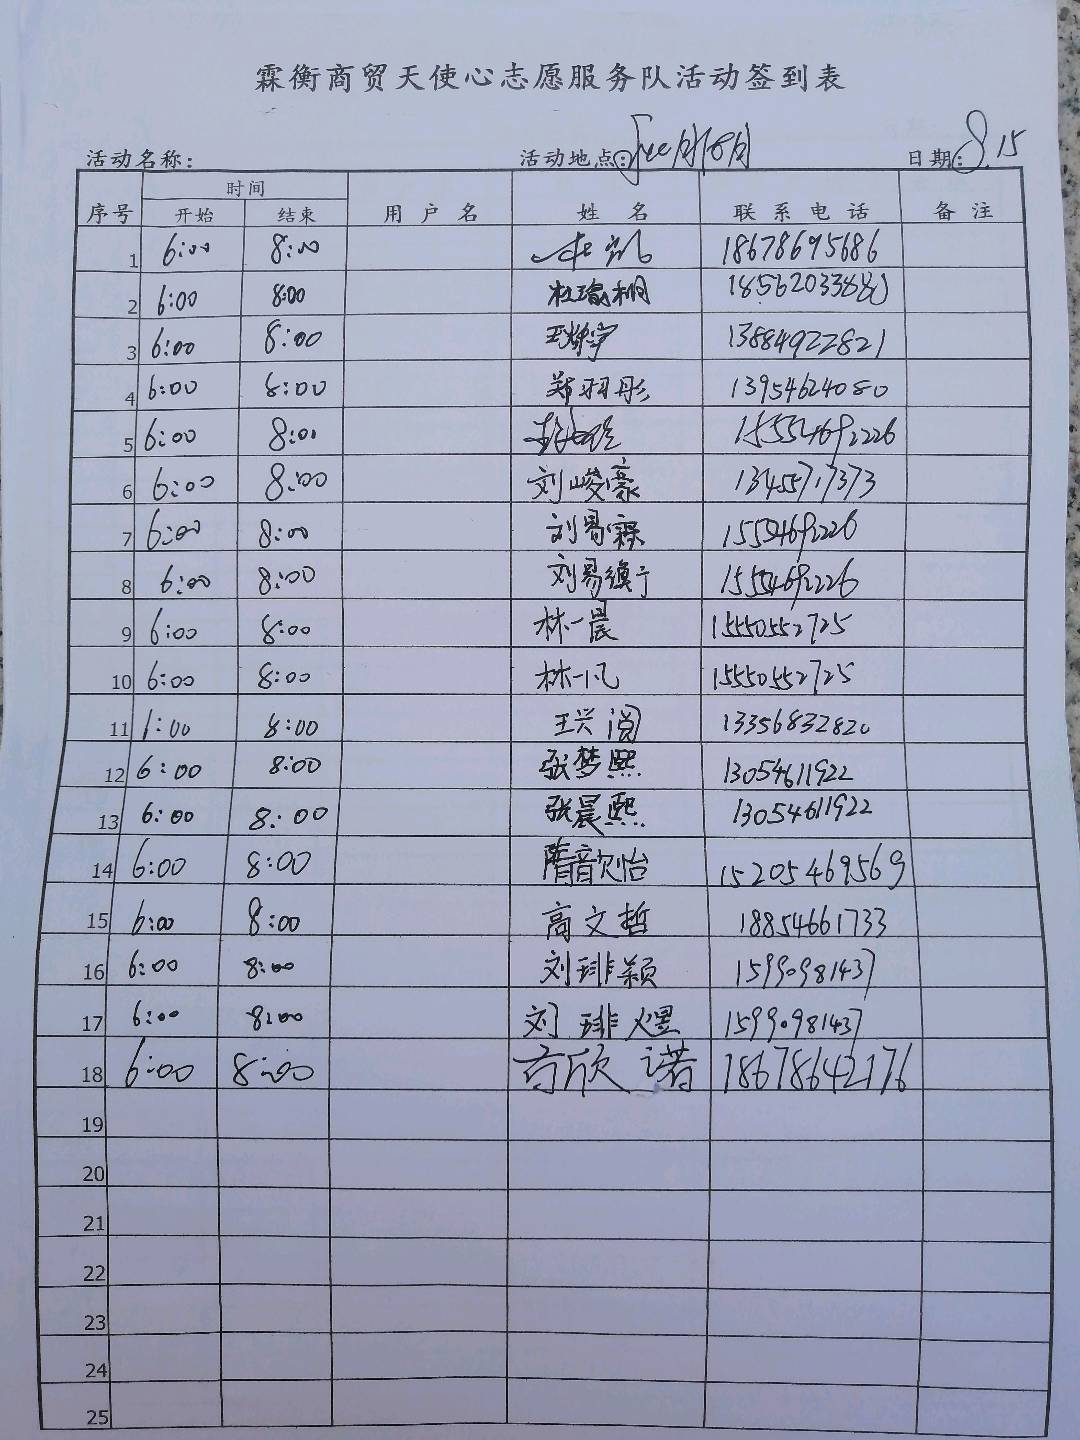 霖衡商贸天使心志愿服务队活动签到表
活动名称: 活动地点: 日期: 8.15
序号 时间 用户名 姓名 联系电话 备注
开始 结束
1 6:00 8:00 18678695686
2 6:00 8:00 杜瑞桐 18562033880
3 6:00 8:00 13884922821
4 6:00 8:00 郑羽彤 13954624080
5 6:00 8:00 15554692226
6 6:00 8:00 刘峻豪 13455717373
7 6:00 8:00 刘易霖 15554692226
8 6:00 8:00 刘易 15554692226
9 6:00 8:00 林一晨 15550552725
10 6:00 8:00 林一凡 15550552725
11 1:00 8:00 王兴阅 13356832820
12 6:00 8:00 张梦熙 13054611922
13 6:00 8:00 张晨熙 13054611922
14 6:00 8:00 隋音欠怡 15205469569
15 6:00 8:00 高文哲 18854661733
16 6:00 8:00 刘琲颖 15990981437
17 6:00 8:00 刘琲煜 15990981437
18 6:00 8:00 高欣诺 18678642176
19
20
21
22
23
24
25